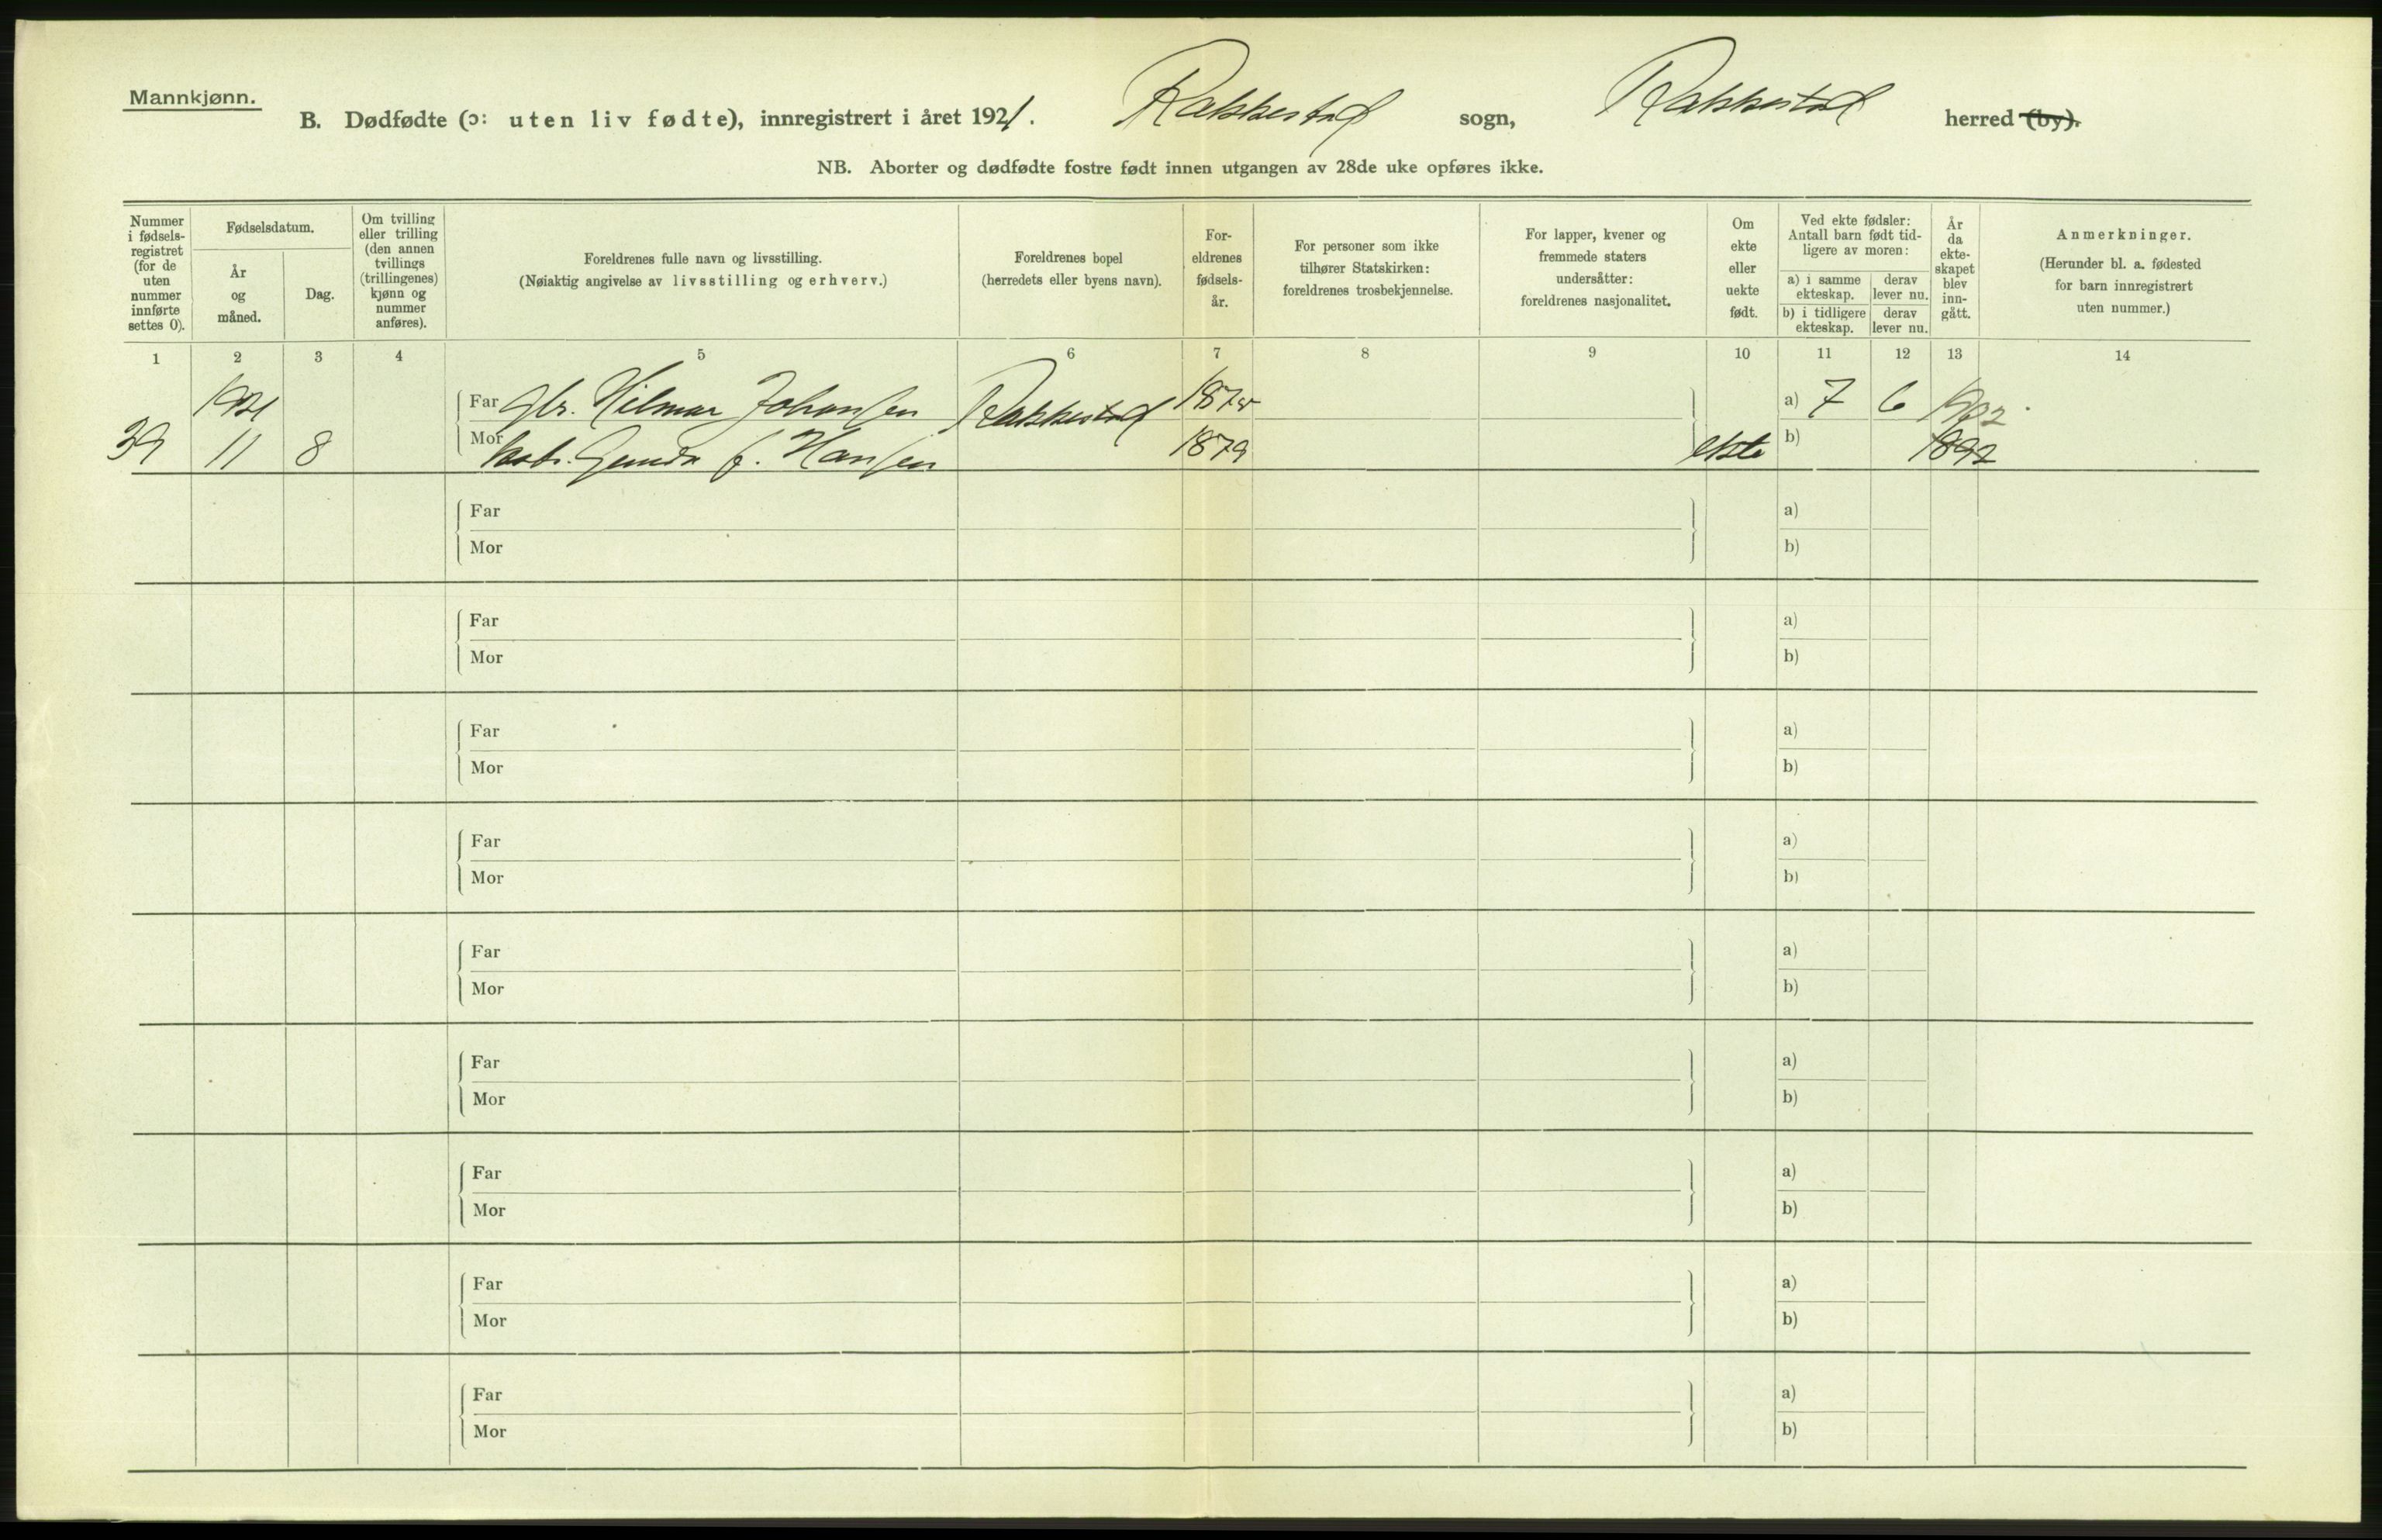 Mannkjønn.
B. Dødfødte (ɔ: uten liv fødte), innregistrert i året 1921. Rakkestad sogn, Rakkestad herred (by).
NB. Aborter og dødfødte fostre født innen utgangen av 28de uke opføres ikke.
Nummer i fødsels-registret (for de uten nummer innførte settes 0).
Fødselsdatum.
År og måned.
Dag.
Om tvilling eller trilling (den annen tvillings (trillingenes) kjønn og nummer anføres).
Foreldrenes fulle navn og livsstilling.
(Nøiaktig angivelse av livsstilling og erhverv.)
Foreldrenes bopel
(herredets eller byens navn).
For-eldrenes fødsels-år.
For personer som ikke tilhører Statskirken: foreldrenes trosbekjennelse.
For lapper, kvener og fremmede staters undersåtter: foreldrenes nasjonalitet.
Om ekte eller uekte født.
Ved ekte fødsler: Antall barn født tid-ligere av moren:
a) i samme ekteskap.
derav lever nu.
b) i tidligere ekteskap.
derav lever nu.
År da ekte-skapet blev inn-gått.
Anmerkninger.
(Herunder bl. a. fødested for barn innregistrert uten nummer.)
1 2 3 4 5 6 7 8 9 10 11 12 13 14
1921 Far Hilmar Johansen Rakkestad a) 7 6 1902
39 11 8 Mor Gunda f. Hansen 1879 ekte b) 1892
Far a)
Mor b)
Far a)
Mor b)
Far a)
Mor b)
Far a)
Mor b)
Far a)
Mor b)
Far a)
Mor b)
Far a)
Mor b)
Far a)
Mor b)
Far a)
Mor b)